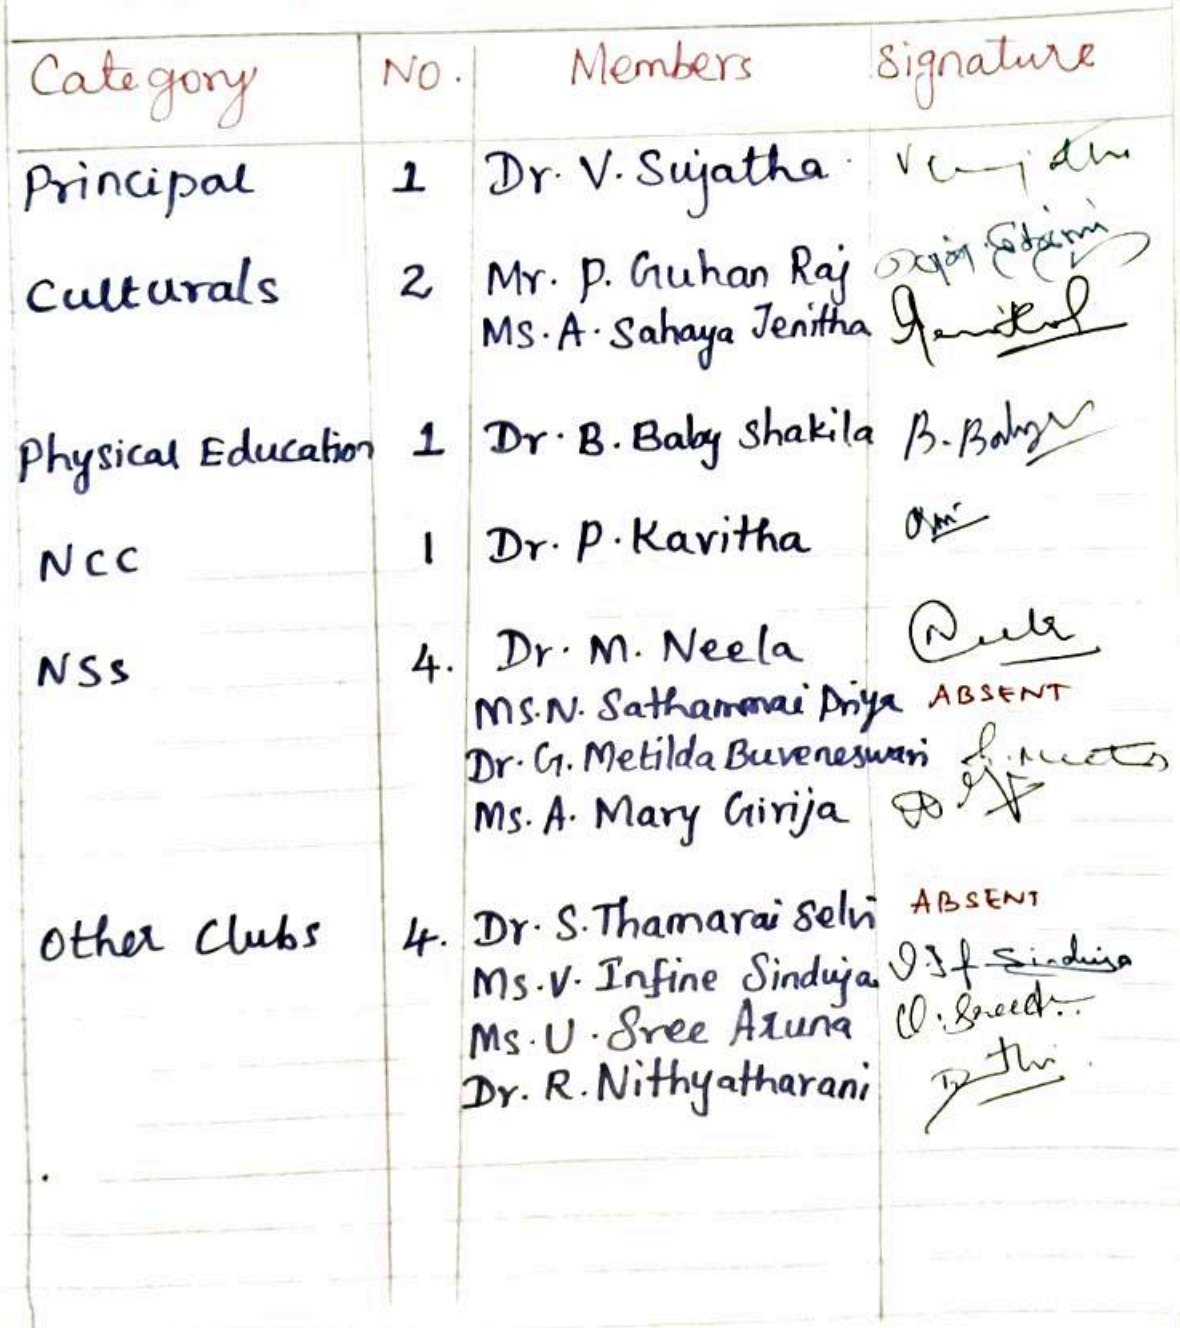 Category No. Members Signature
Principal 1 Dr. V. Sujatha
Culturals 2 Mr. P. Guhan Raj
Ms. A. Sahaya Jenitha
Physical Education 1 Dr. B. Baby Shakila B. Baby
NCC 1 Dr. P. Kavitha
NSS 4. Dr. M. Neela
Ms. N. Sathammai Priya ABSENT
Dr. G. Metilda Buveneswari
Ms. A. Mary Girija
Other Clubs 4. Dr. S. Thamarai Selvi ABSENT
Ms. V. Infine Sinduja Sinduja
Ms. U. Sree Aruna
Dr. R. Nithyatharani